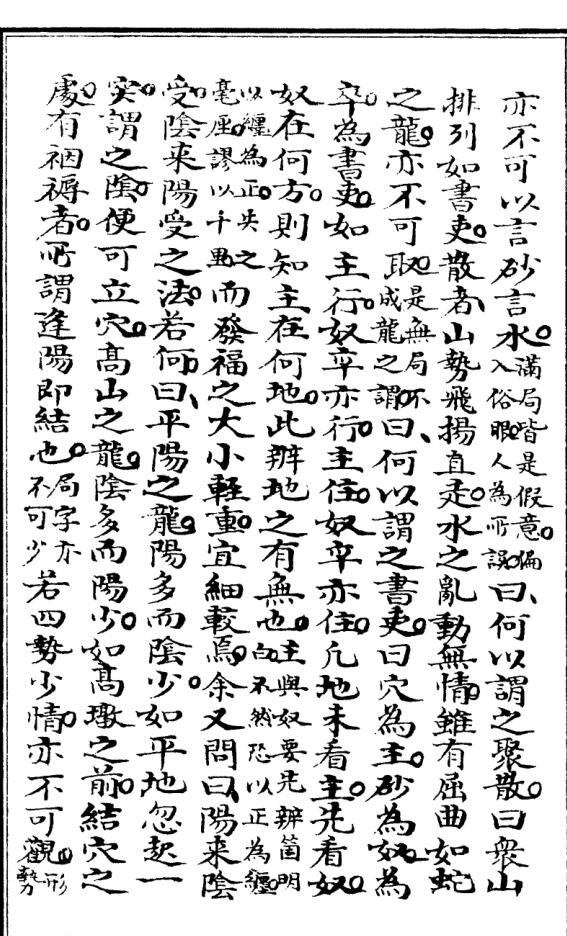 亦不可以言砂言水。滿局皆是假意。偏入俗眼。人為所誤。曰、何以謂之聚散。曰衆山
排列如書吏。散者、山勢飛揚直走。水之亂動無情。雖有屈曲如蛇
之龍。亦不可取。是無局不成龍之謂。曰、何以謂之書吏。曰穴為主。砂為奴。為
卒。為書吏。如主行。奴卒亦行。主住。奴卒亦住。凡地未看主。先看奴。
奴在何方。則知主在何地。此辨地之有無也。主與奴要先辨箇明白。不然恐以正為纏。
以纏為正。失之毫厘。謬以千里。而發福之大小輕重。宜細較焉。余又問曰、陽來陰
受。陰來陽受之法。若何。曰、平陽之龍。陽多而陰少。如平地忽起一
突。謂之陰。便可立穴。高山之龍。陰多而陽少。如高墩之前。結穴之
處。有裀褥者。所謂逢陽即結也。局字亦不可少。若四勢少情。亦不可觀。形勢